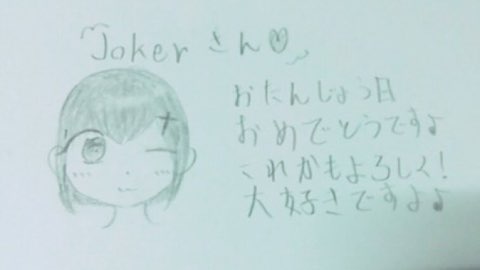 Jokerさん♡
おたんじょう日
おめでとうですよ
これかもよろしく!
大好きですよ♪